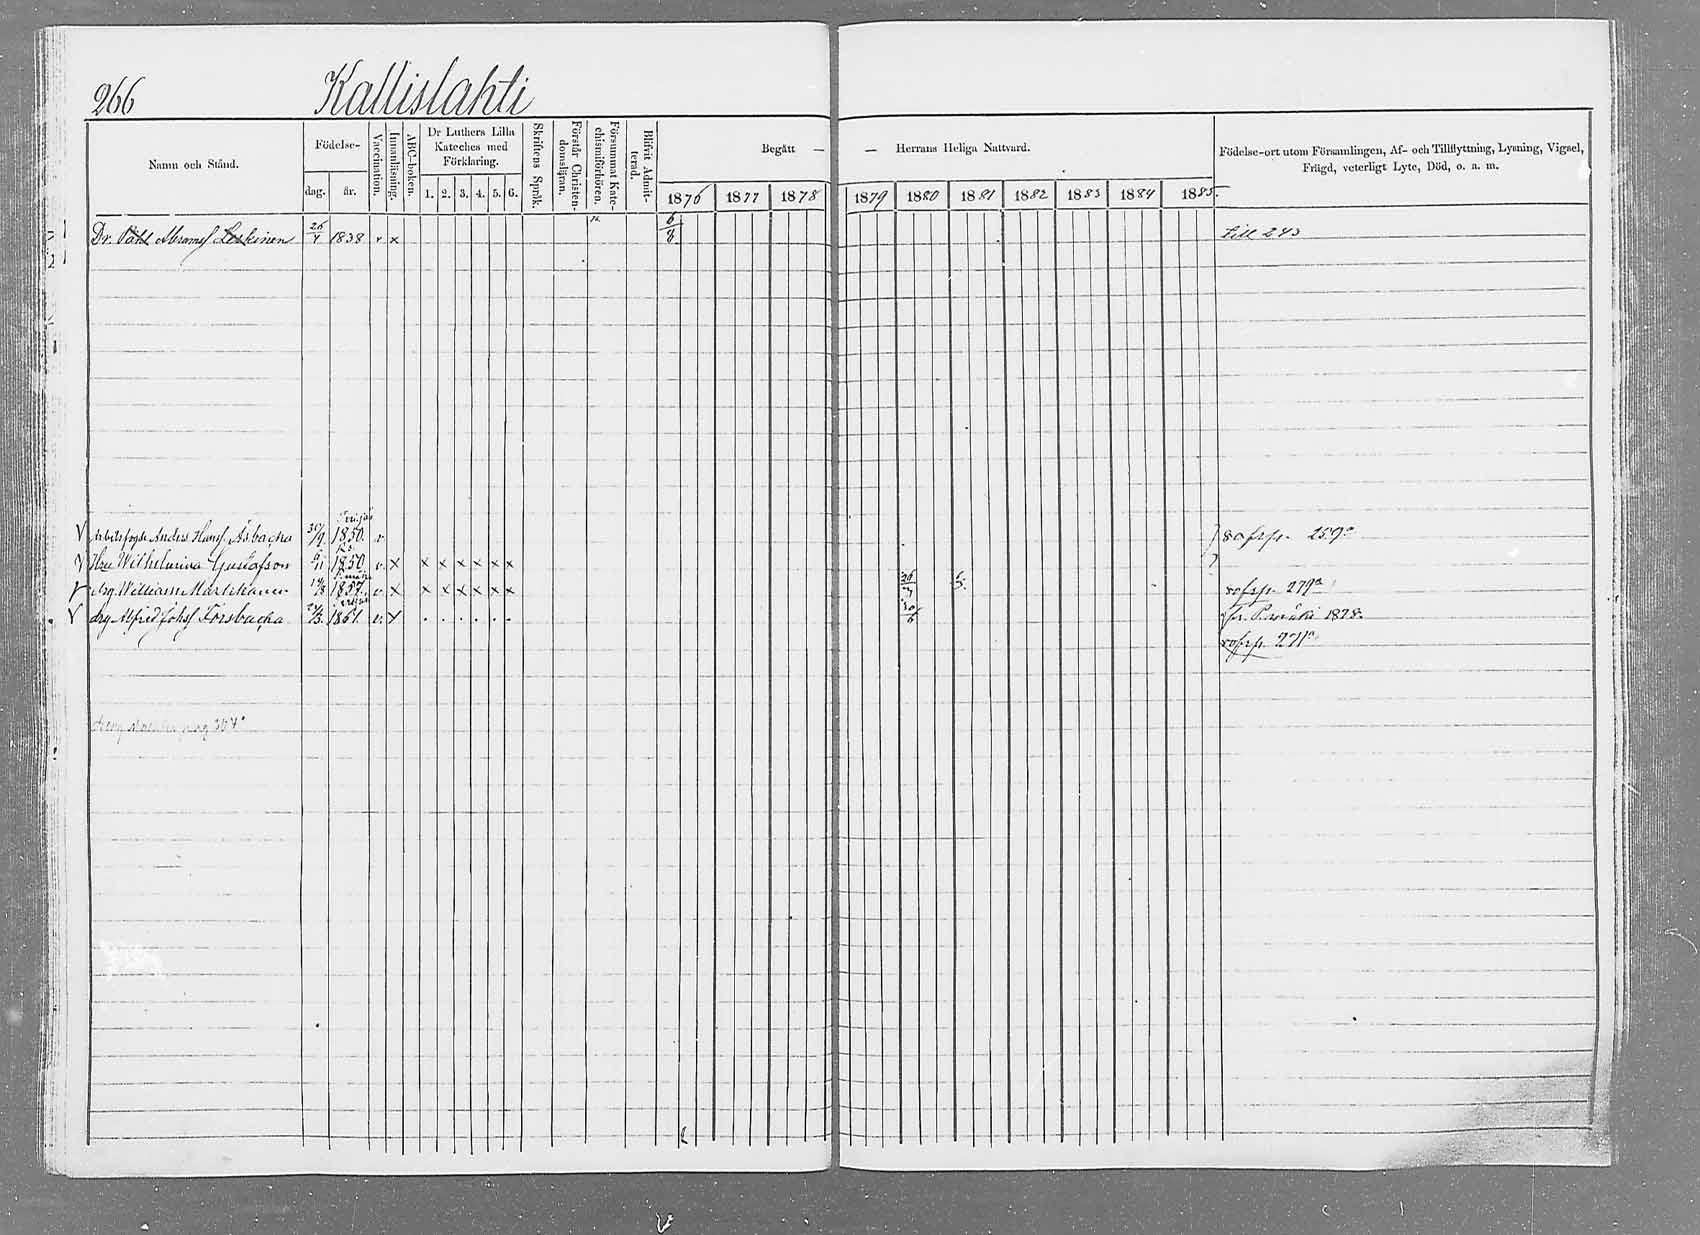 266 Kallislahti
Namn och Stånd. Födelse- dag. år. Vaccination. Innanläsning. ABC-boken. Dr Luthers Lilla Kateches med Förklaring. 1. 2. 3. 4. 5. 6. Skriftens Språk. Förstår Christen-domsläran. Försummat Kate-chismiförhören. Blifvit Admit-terad. Begått — — Herrans Heliga Nattvard. 1876 1877 1878 1879 1880 1881 1882 1883 1884 1885. Födelse-ort utom Församlingen, Af- och Tillflyttning, Lysning, Vigsel, Frägd, veterligt Lyte, Död, o. a. m.
Dr. Påhl Abramsf Leskinen 26/4 1838 v x 6/8 till 243
Anders Hansf Åsbacka 30/9 1850. v. 259
Wilhelmina Gustafson 1850. v. x x x x x x x
drg. William Martikainen 1857. v. x x x x x x x 279
drg Alfred Johsf Forsbacka 1861. v. x . . . . . . 1878.
271